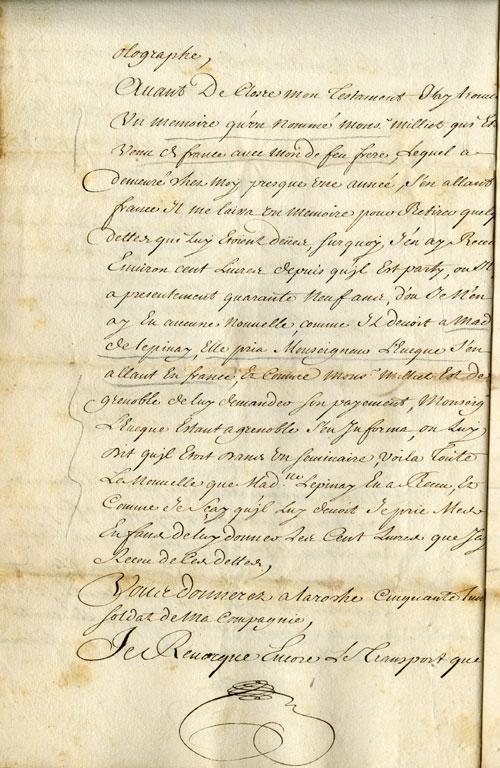 olographe,
Avant De Clorre mon Testament J'ay trouvé
Un memoire qu'un nommé Mons.r milliot qui Est
Venu de france avec mon de feu frere Lequel a
demeuré chez moy presque une année, S'en allant
france Il me laissa un memoire pour Retirer quelq
dettes qui Luy Etoient deües, Surquoy, J'en ay Receu
Environ cent Livres depuis qu'jl Est party, ou Il
a presentement quarante Neuf ans, d'ou Je N'en
ay Eu aucune Nouvelle, comme Il devoit a Mad
de Lepinay, Elle pria Monseigneur L'Eveque S'en
allant En france, Et Comme Mons.r Milliot Est de
grenoble de luy demander son payement, Monseig
L'Eveque Etant a grenoble S'en Informa, on Luy
dit qu'jl Etoit dans Un Seminaire, Voila Toute
La Nouvelle que Mad.ne Lepinay En a Receu, Et
Comme Je Sçay qu'jl Luy devoit Je prie Mes
Enfans de luy donner Les Cent Livres que J'ay
Receu de Ces dettes,
Vous donnerez a laroche Cinquante
soldat de Ma Compagnie,
Je Revocque Encore Le Transport que